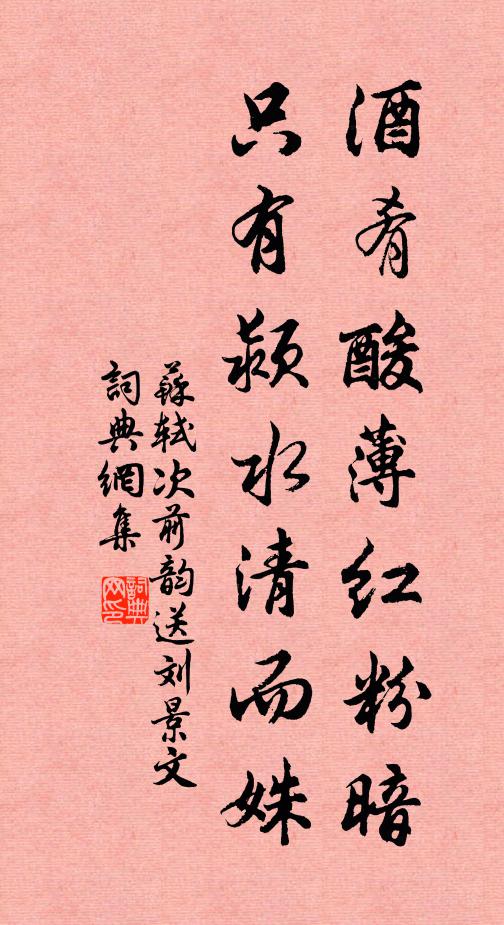 酒肴酸薄红粉暗
只有颍水清而姝
蘇軾次前韵送刘景文
詞典網集
詞典网印